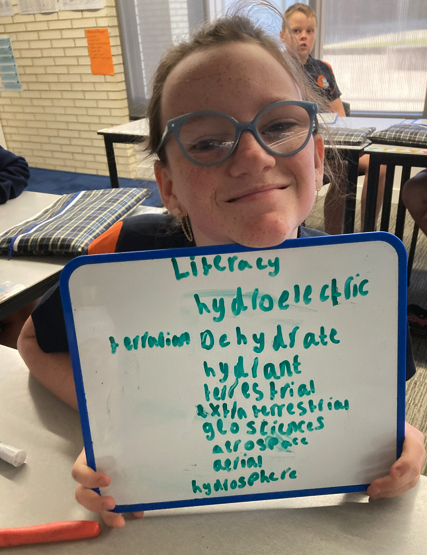 Literacy
hydroelectric
terralian Dehydrate
hydrant
terrestrial
extraterrestrial
geosciences
aerospace
aerial
hydrosphere